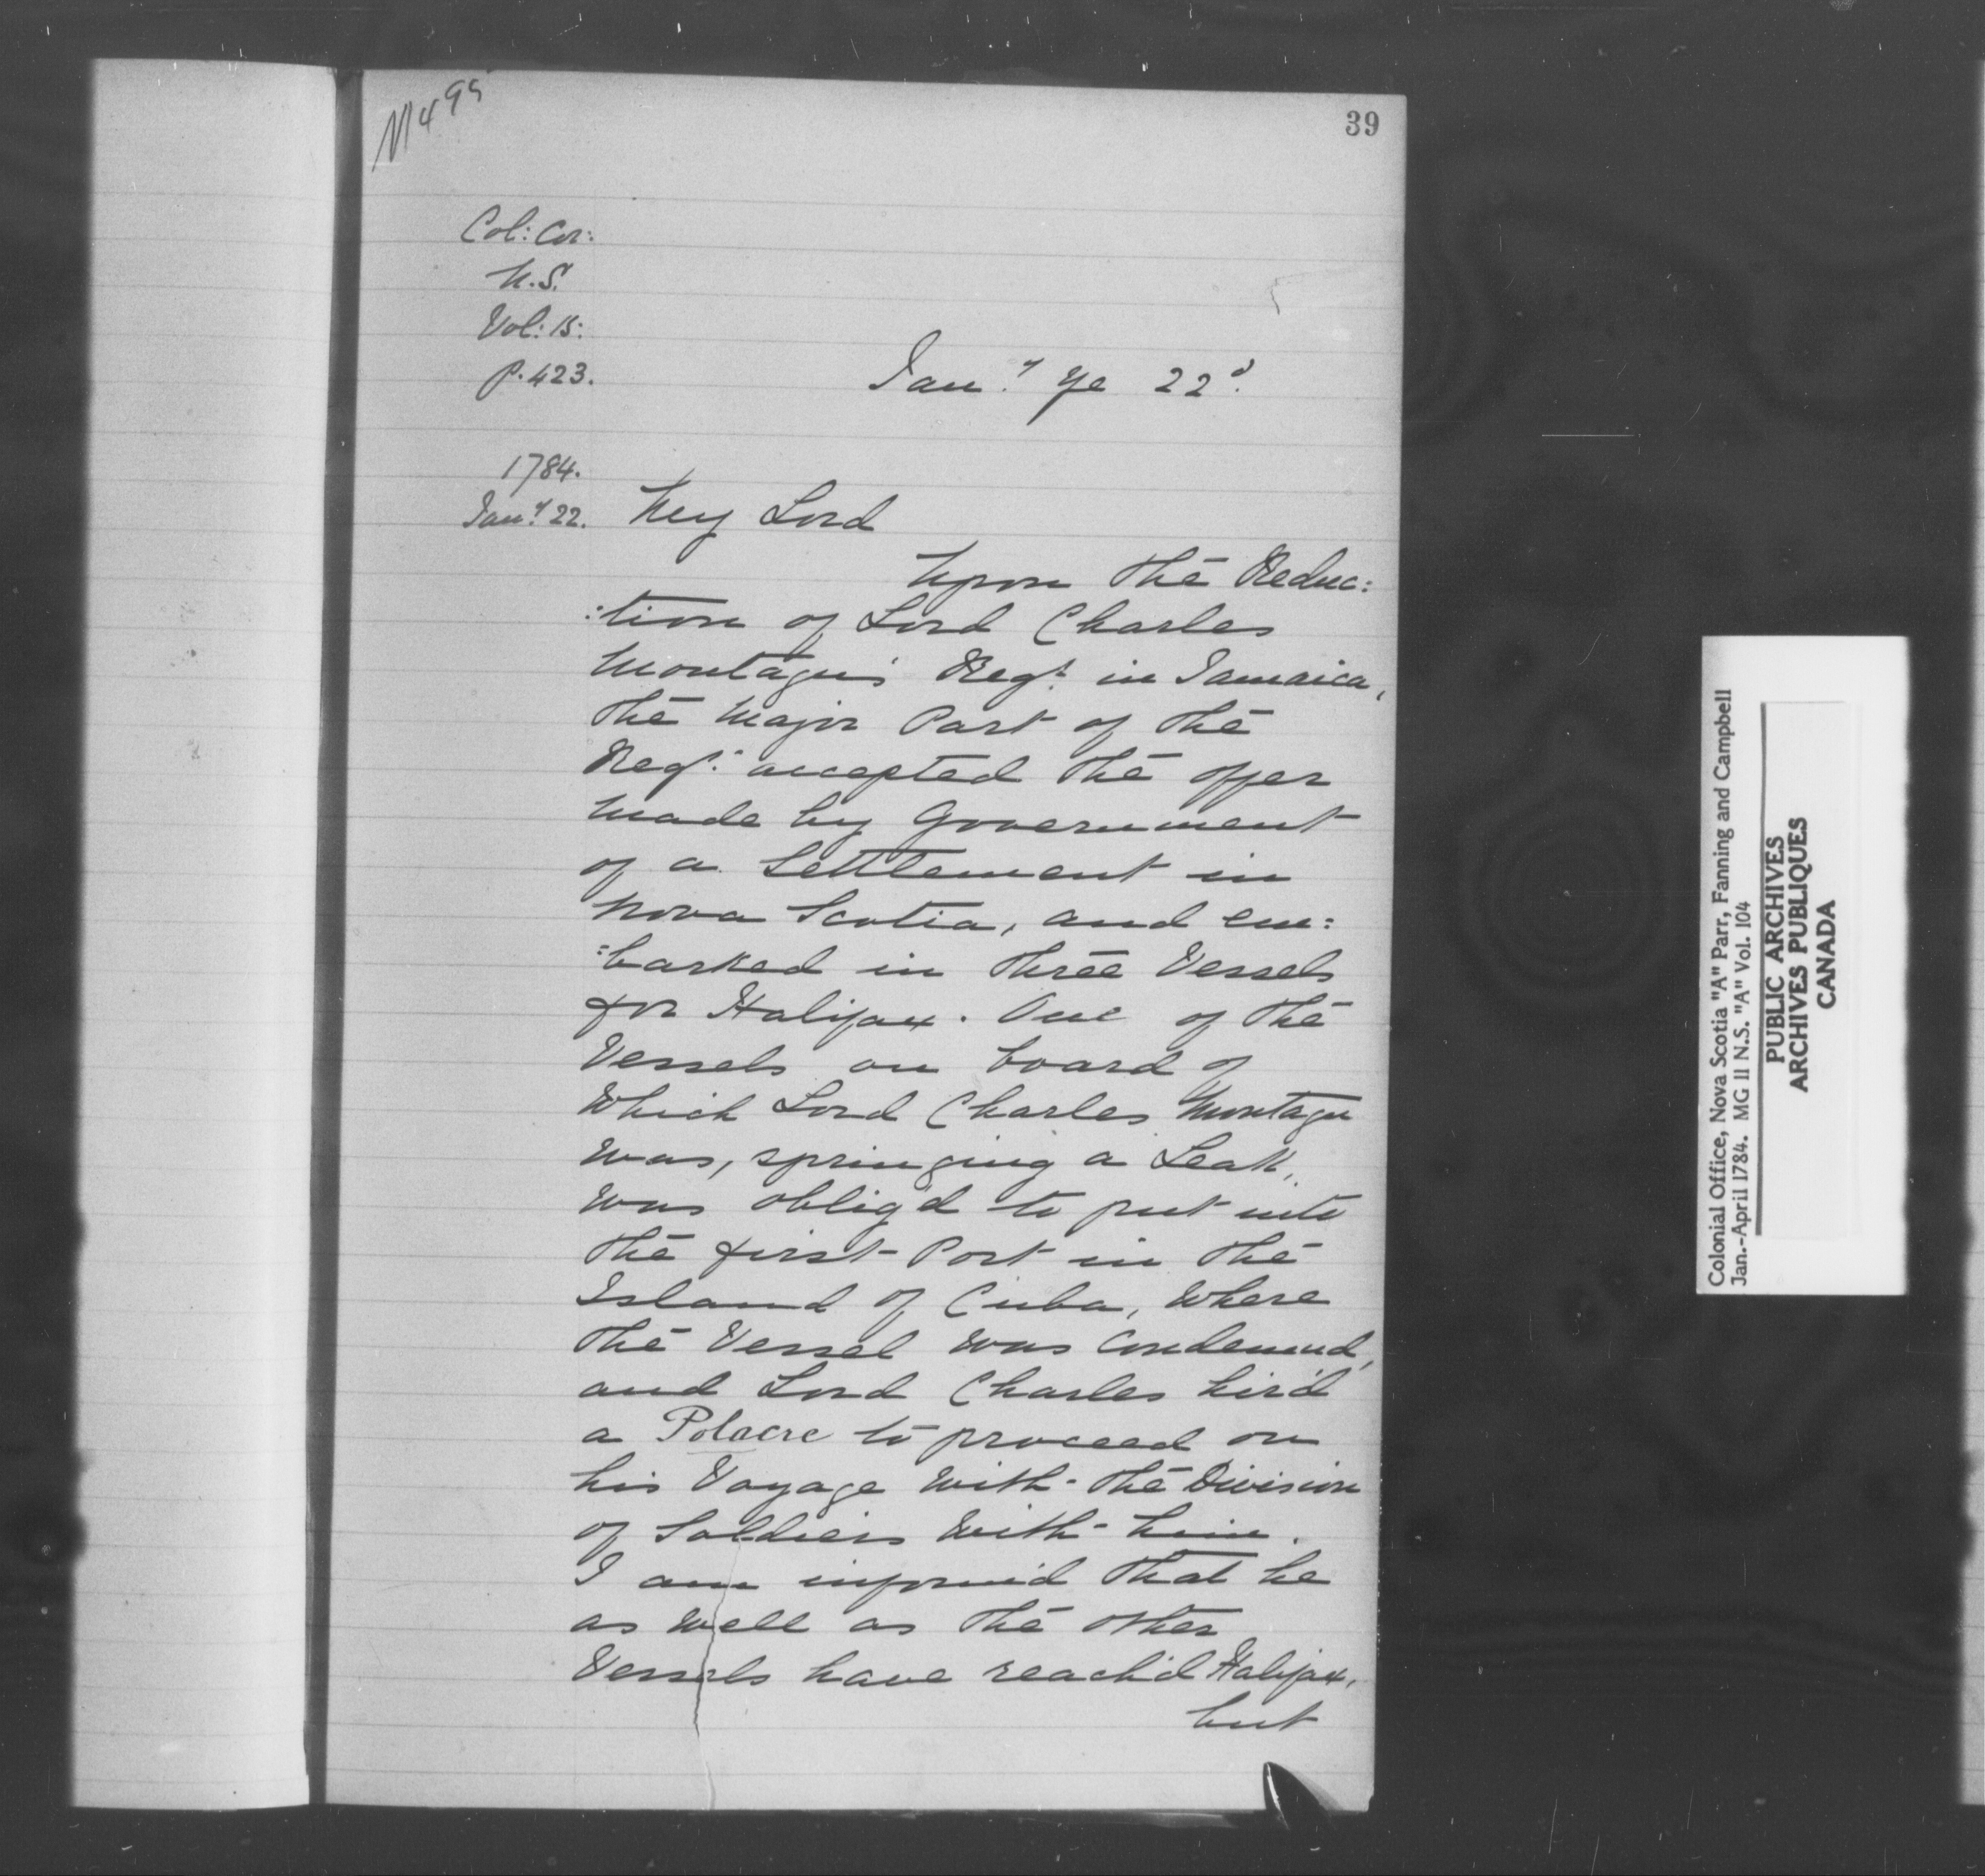 M 495
39
Col: Cor:
N.S.
Vol: 15:
P. 423.
Jan.y ye 22d.
1784.
Jan.y 22.
My Lord
Upon the Reduc:
:tion of Lord Charles
Montagu's Regt. in Jamaica,
the Major Part of the
Regt. accepted the offer
made by Government
of a Settlement in
Nova Scotia, and em:
:barked in three Vessels
for Halifax. One of the
Vessels on board of
which Lord Charles Montagu
was, springing a Leak,
was oblig'd to put into
the first Port in the
Island of Cuba, where
the Vessel was condemn'd,
and Lord Charles hir'd
a Polacre to proceed on
his Voyage with the Division
of Soldiers with him.
I am inform'd that he
as well as the other
Vessels have reach'd Halifax,
but
Colonial Office, Nova Scotia "A" Parr, Fanning and Campbell
Jan.-April 1784. MG 11 N.S. "A" Vol. 104
PUBLIC ARCHIVES
ARCHIVES PUBLIQUES
CANADA